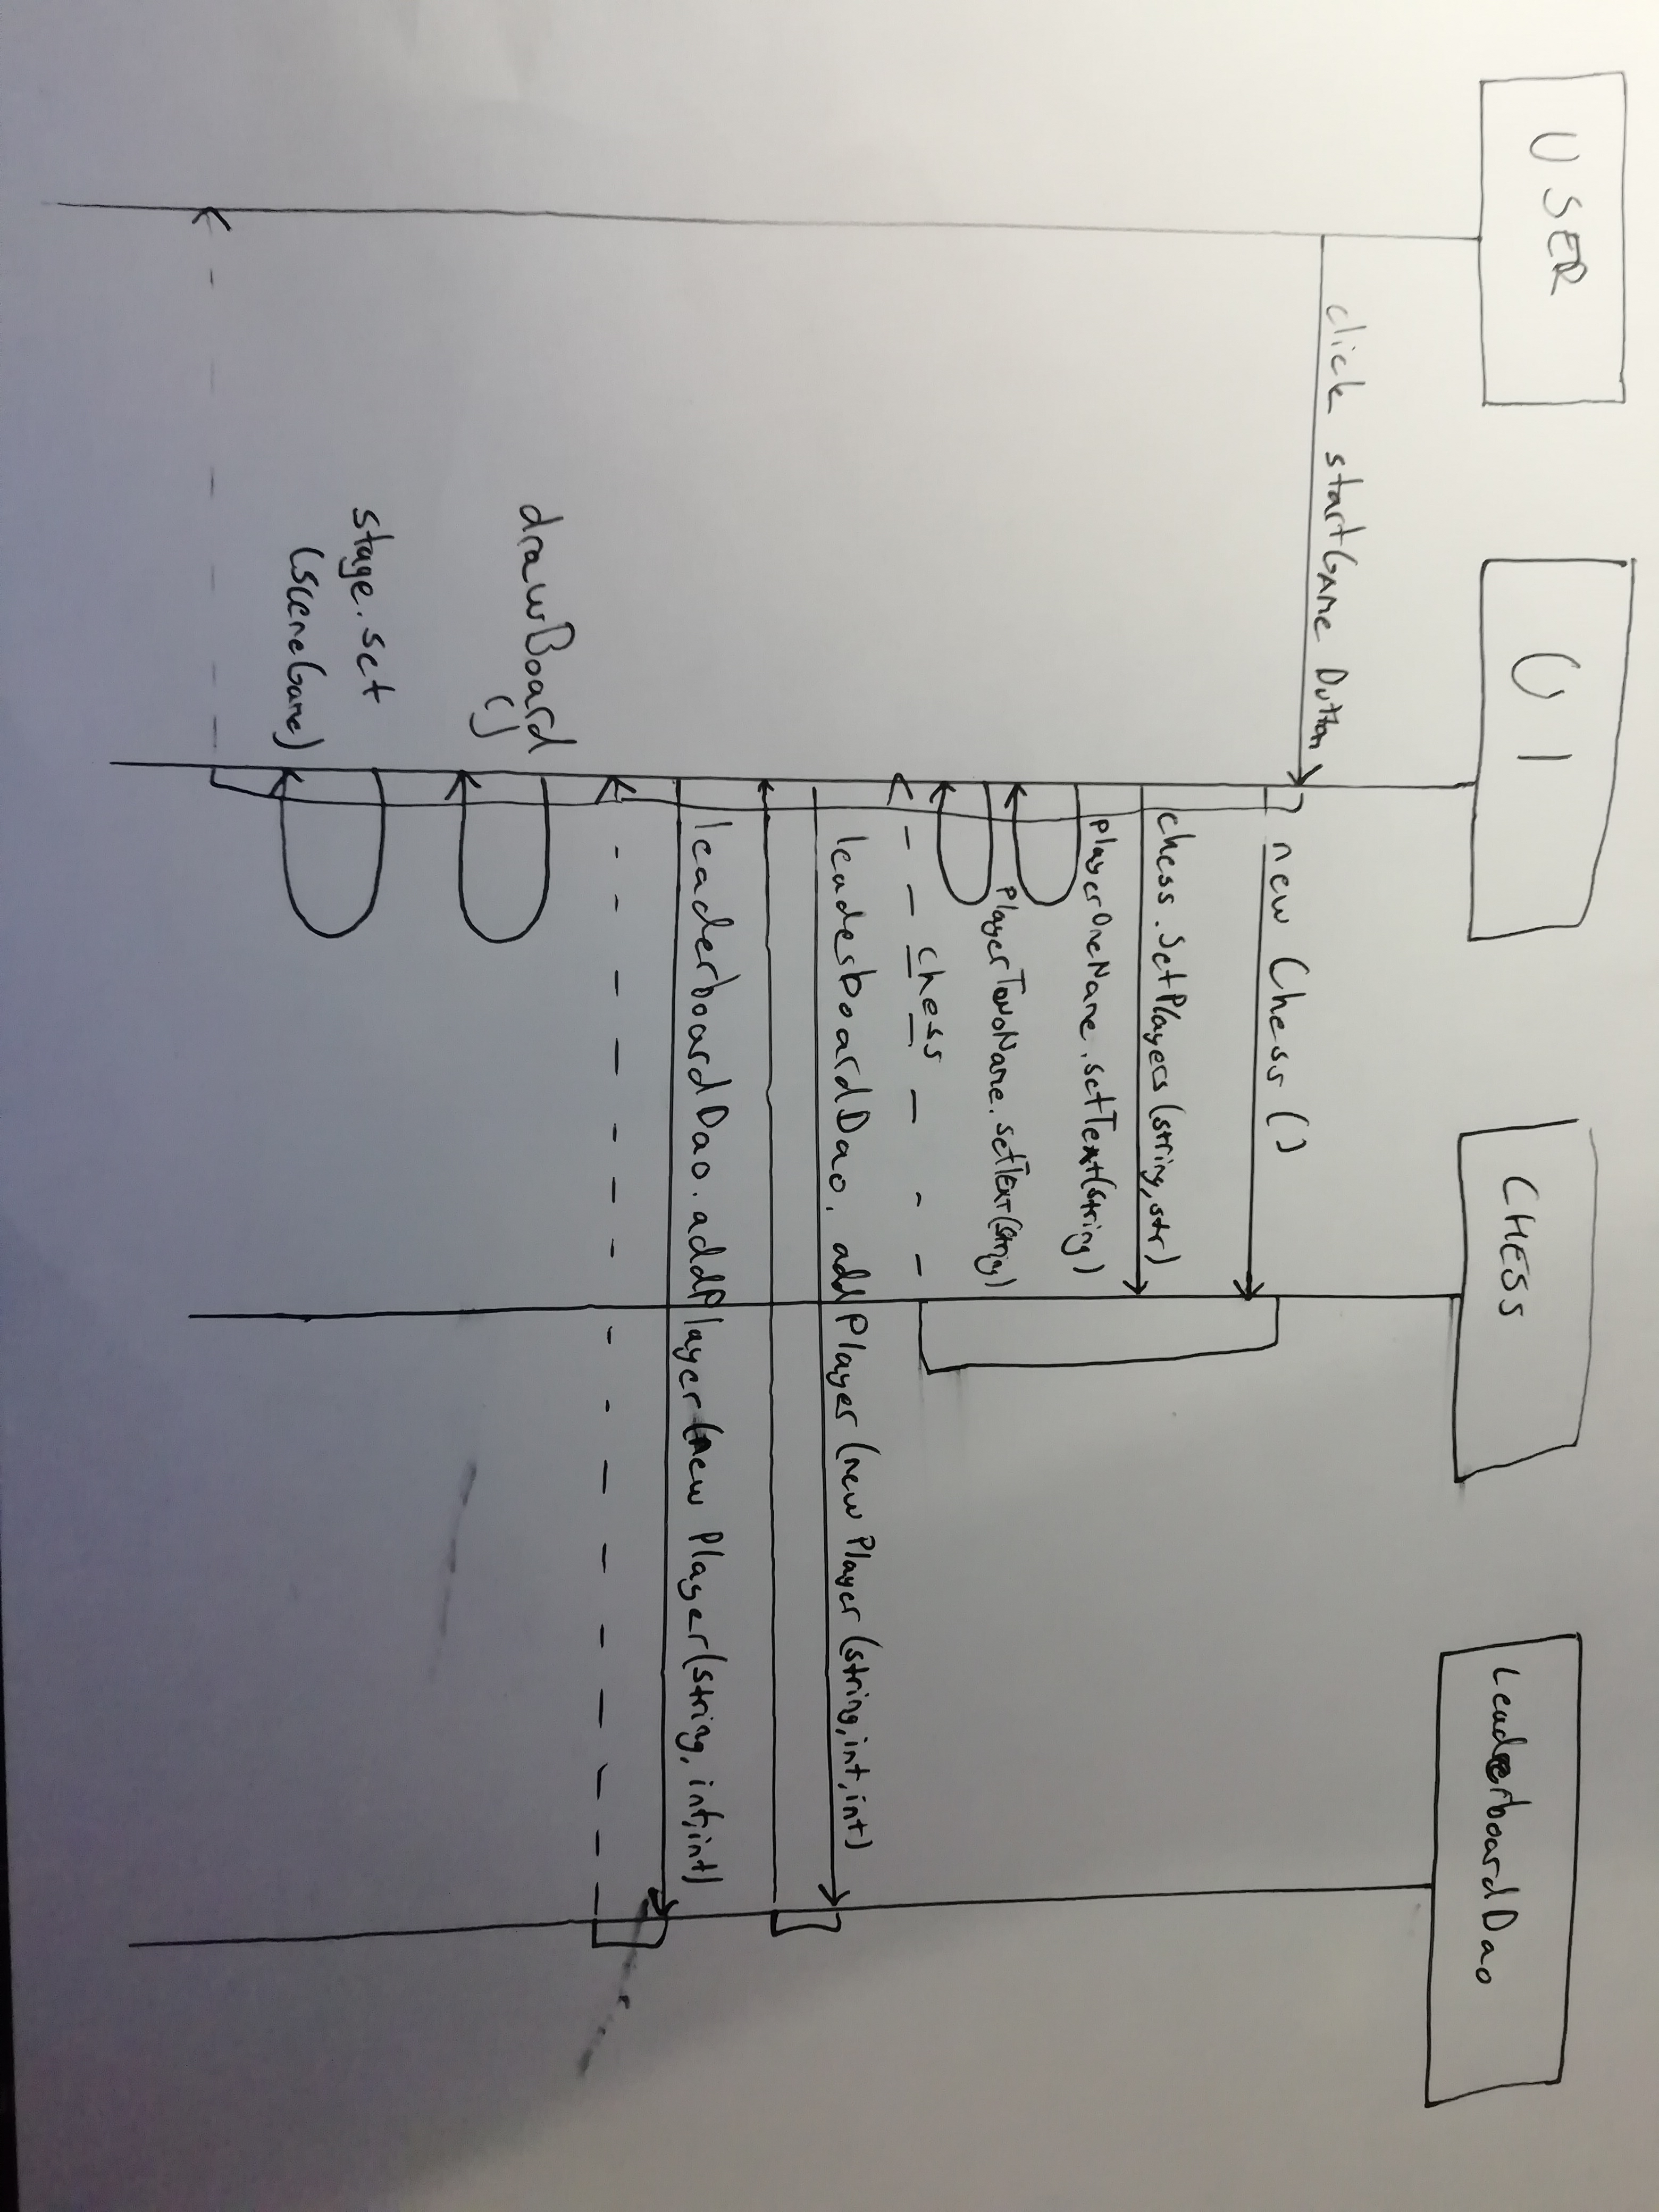 USER
UI
CHESS
LeaderboardDao
click startGame Button
new Chess ()
chess.SetPlayers (string, str)
playerOneName.setText(String)
PlayerTwoName.setText(String)
chess
leaderboardDao. addPlayer (new Player (string, int, int)
leaderboardDao.addPlayer (new Player(string, int, int)
drawBoard
()
stage.set
(sceneGame)